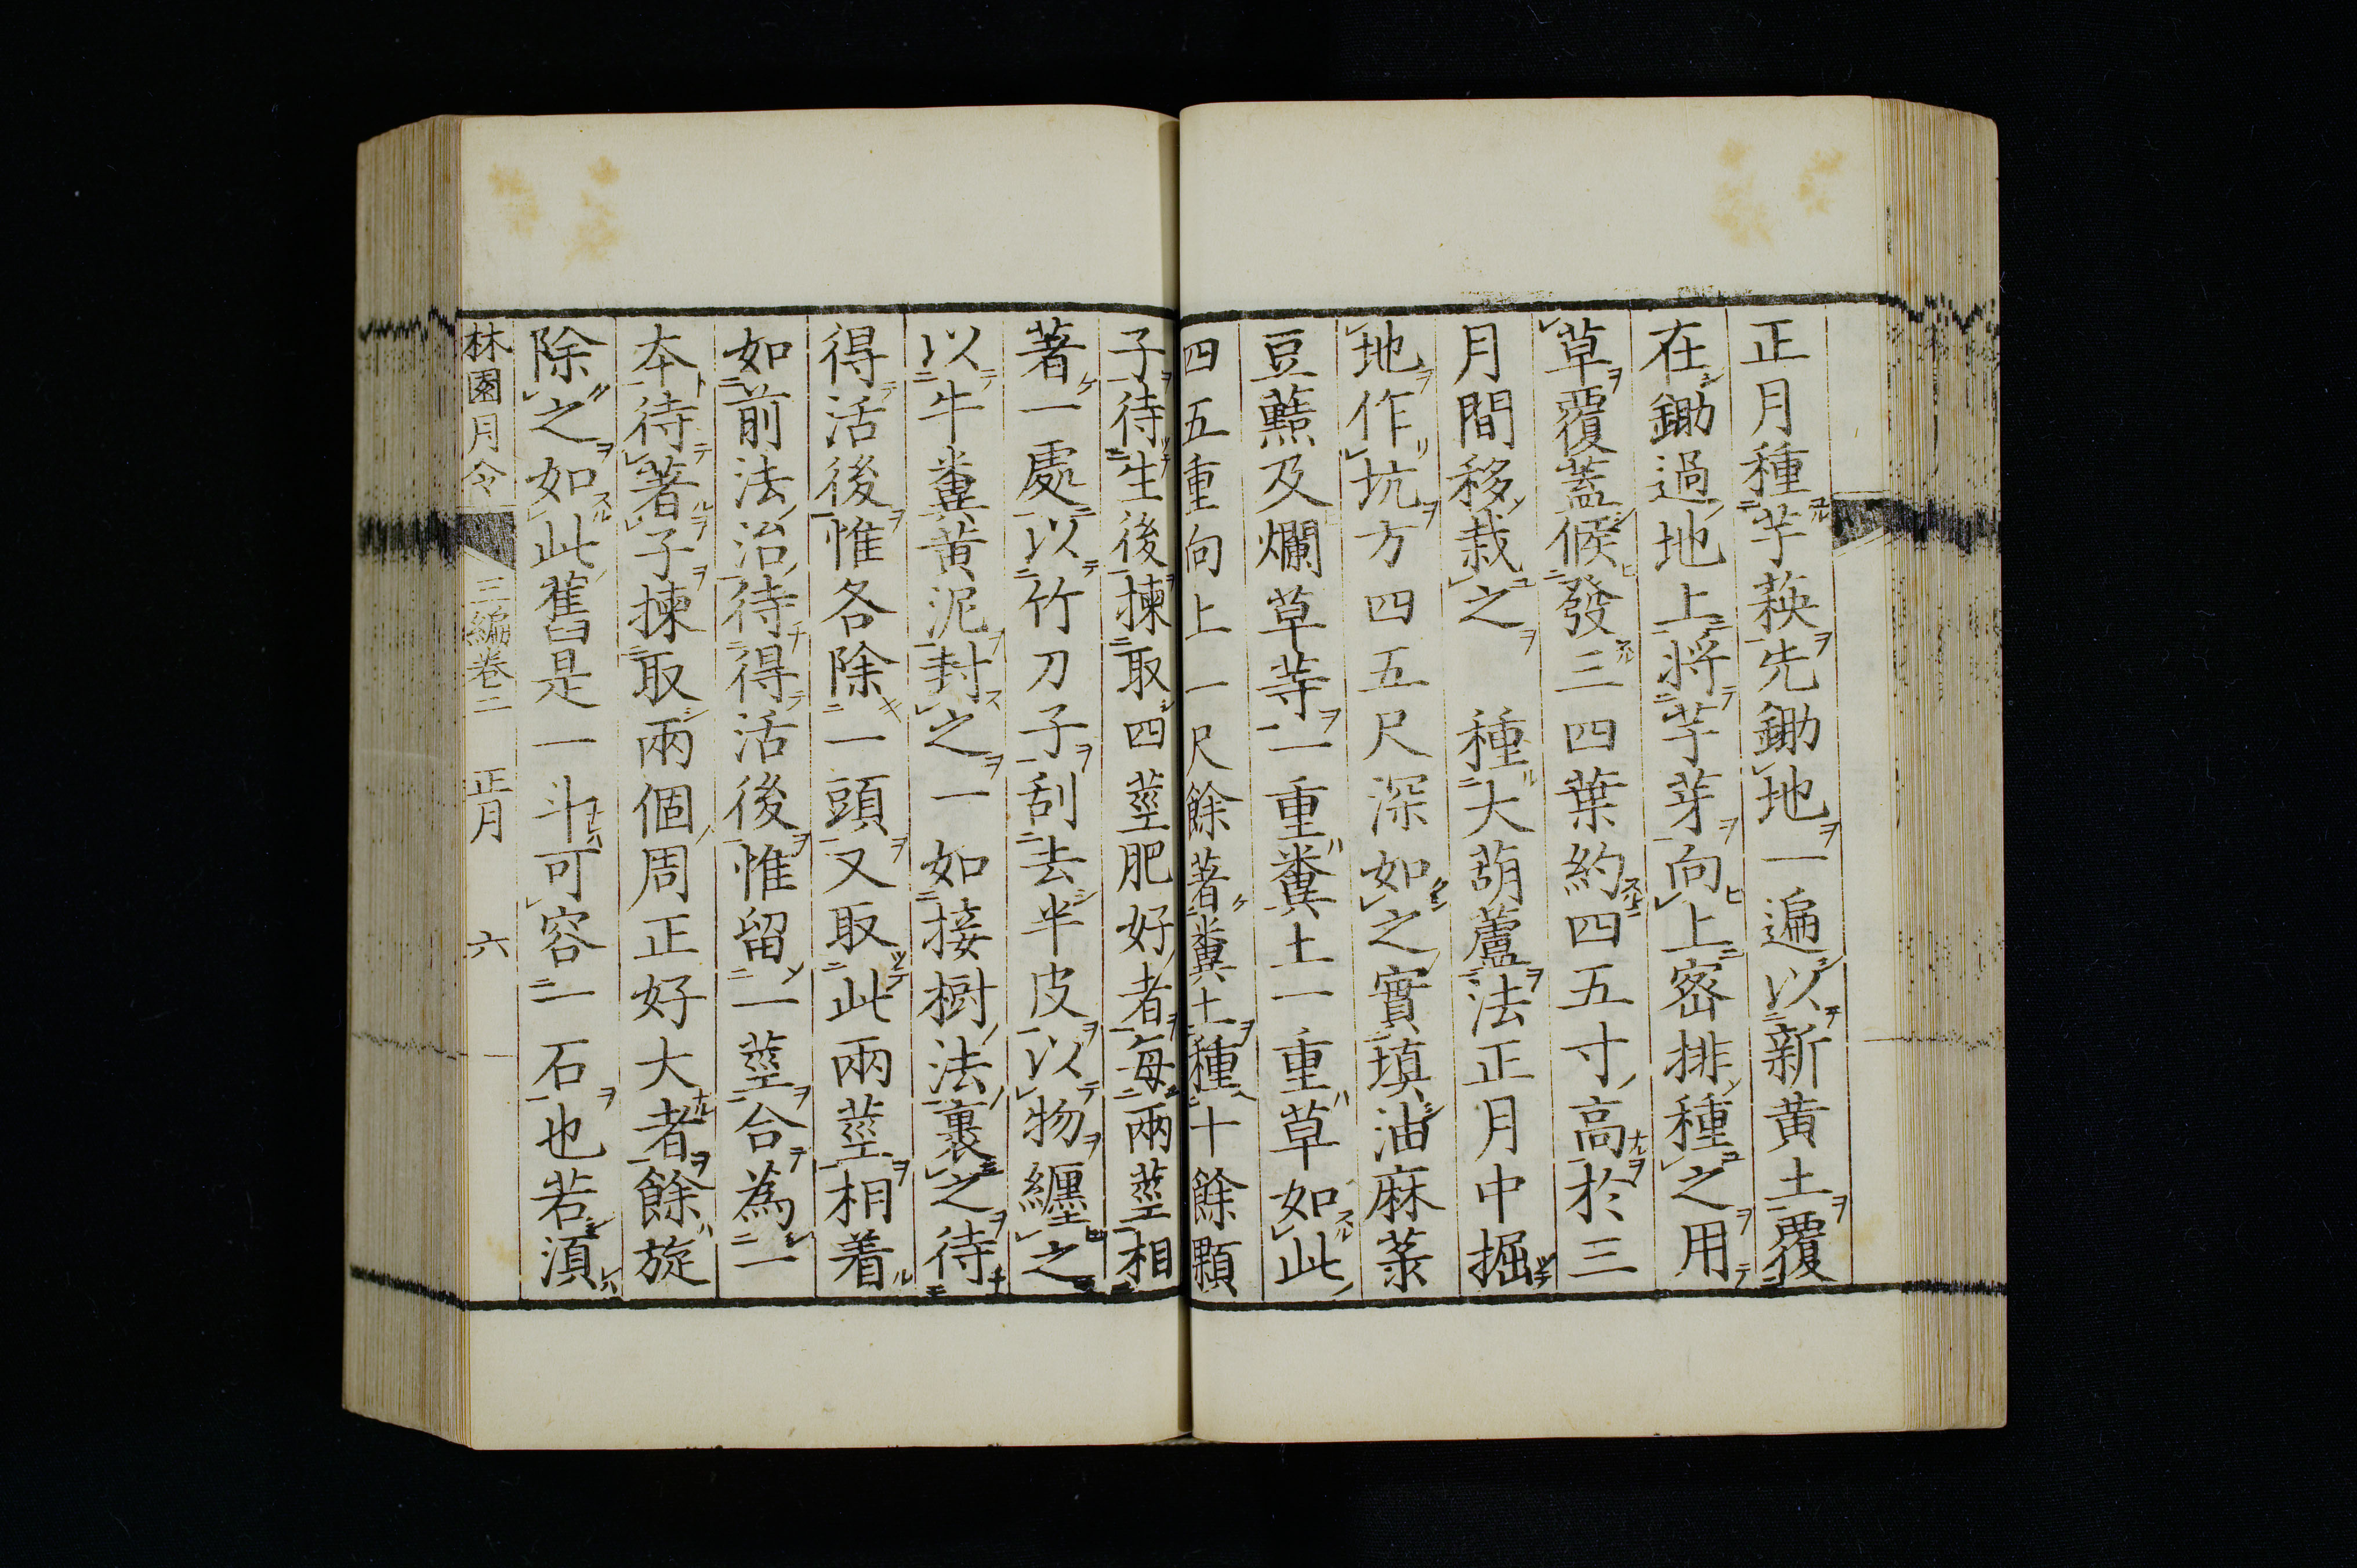 正月種芋䕅先鋤地一遍以新黄土覆
在鋤過地上将芋芽向上密排種之用
草覆蓋候發三四葉約四五寸高於三
月間移栽之　種大葫蘆法正月中掘
地作坑方四五尺深如之實填油麻菉
豆䕸及爛草等一重糞土一重草如此
四五重向上一尺餘著糞土種十餘顆
子待生後揀取四莖肥好者每兩莖相
著一處以竹刀子刮去半皮以物纏之
以牛糞黄泥封之一如接樹法裹之待
得活後惟各除一頭又取此兩莖相着
如前法治待得活後惟留一莖合為一
本待著子揀取兩個周正好大者餘旋
除之如此舊是一斗可容一石也若湏
林園月令 三編卷二 正月 六